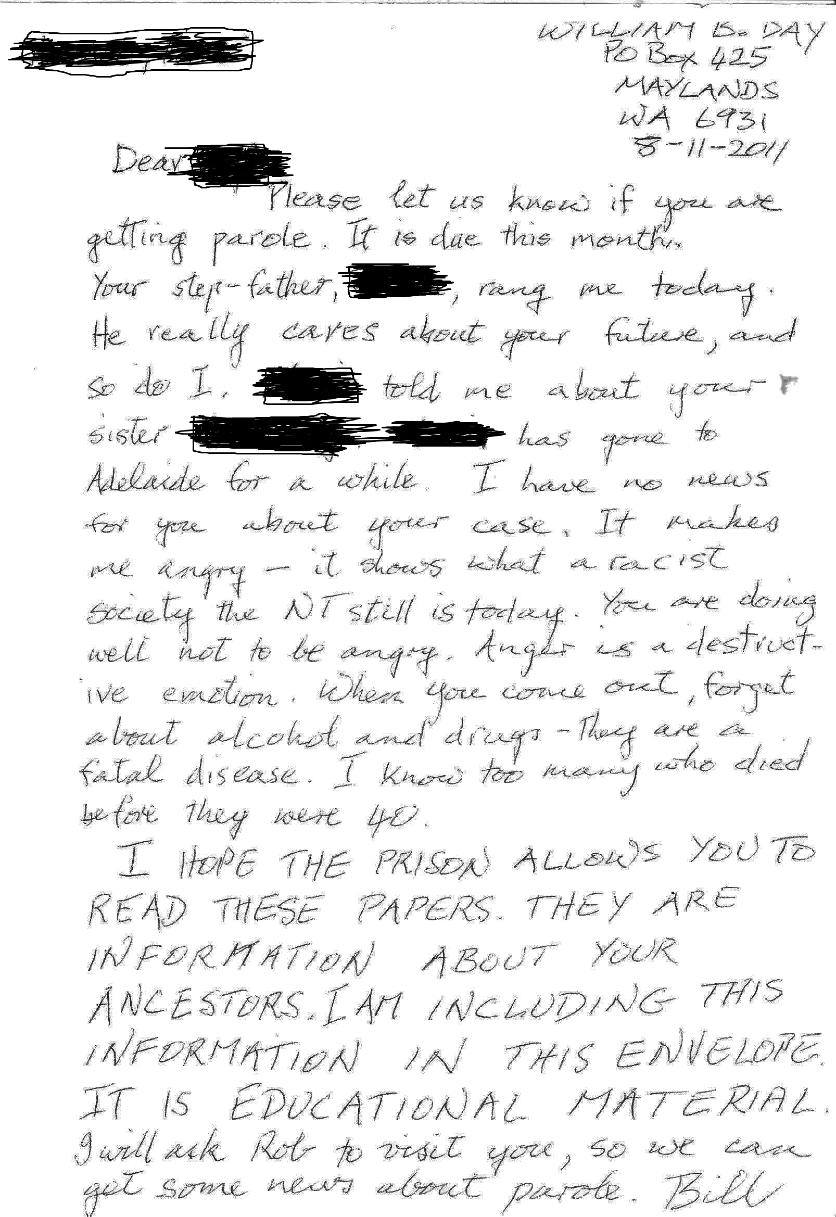 WILLIAM B. DAY
PO Box 425
MAYLANDS
WA 6931
8-11-2011
Dear
Please let us know if you are
getting parole. It is due this month.
Your step-father, , rang me today.
He really cares about your future, and
so do I. told me about your
sister has gone to
Adelaide for a while. I have no news
for you about your case. It makes
me angry - it shows what a racist
society the NT still is today. You are doing
well not to be angry. Anger is a destruct-
ive emotion. When you come out, forget
about alcohol and drugs - They are a
fatal disease. I know too many who died
before they were 40.
I HOPE THE PRISON ALLOWS YOU TO
READ THESE PAPERS. THEY ARE
INFORMATION ABOUT YOUR
ANCESTORS. I AM INCLUDING THIS
INFORMATION IN THIS ENVELOPE.
IT IS EDUCATIONAL MATERIAL.
I will ask Rob to visit you, so we can
get some news about parole. Bill